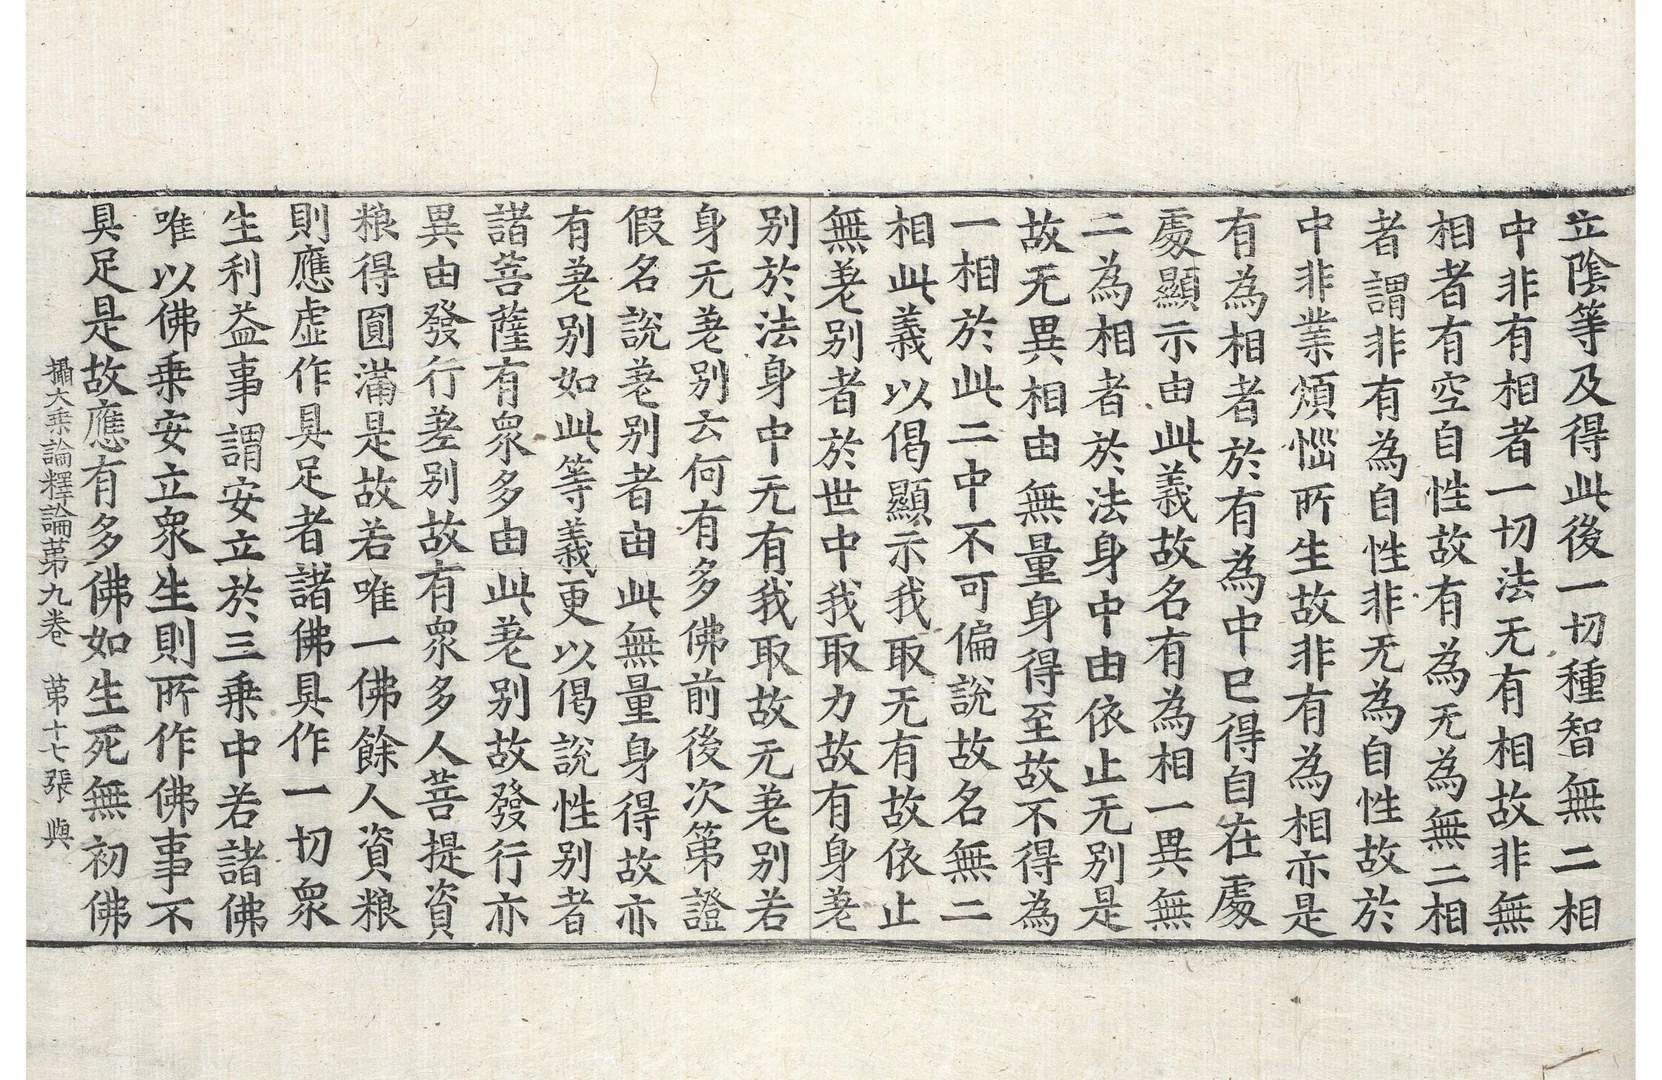 立陰等及得此後一切種智無二相
中非有相者一切法无有相故非無
相者有空自性故有為无為無二相
者謂非有為自性非无為自性故於
中非業煩惱所生故非有為相亦是
有為相者於有為中已得自在處
處顯示由此義故名有為相一異無
二為相者於法身中由依止无別是
故无異相由無量身得至故不得為
一相於此二中不可偏說故名無二
相此義以偈顯示我取无有故依止
無差別者於世中我取力故有身差
別於法身中无有我取故无差別若
身无差別云何有多佛前後次第證
假名說差別者由此無量身得故亦
有差別如此等義更以偈說性別者
諸菩薩有衆多由此差別故發行亦
異由發行差別故有衆多人菩提資
粮得圓滿是故若唯一佛餘人資粮
則應虛作具足者諸佛具作一切衆
生利益事謂安立於三乗中若諸佛
唯以佛乗安立衆生則所作佛事不
具足是故應有多佛如生死無初佛
攝大乗論釋論第九卷　第十七張　與